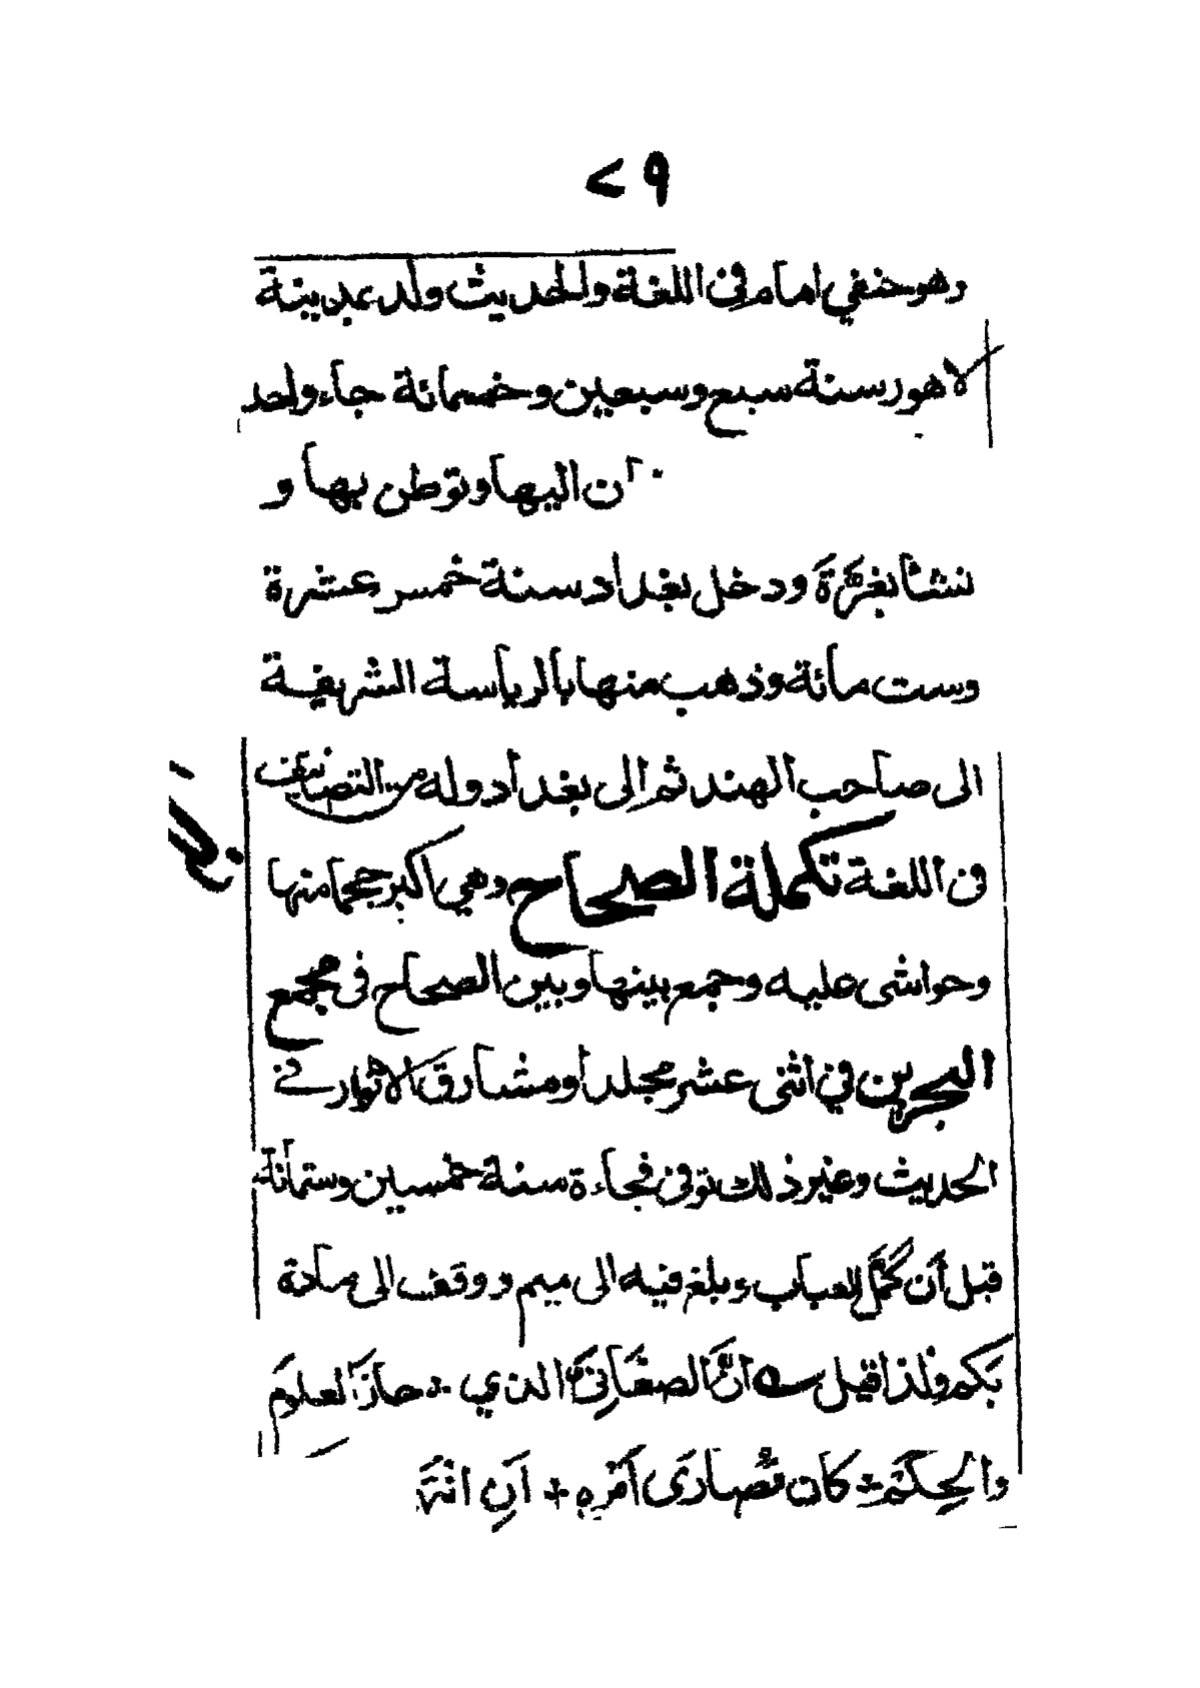 ٢٩
وهو حنفي امام فى اللغة والحديث ولد بمدينة
لاهور سنة سبع وسبعين وخمسمائة جاء والد
ان اليها وتوطن بها و
نشأ بغزة ودخل بغداد سنة خمس عشرة
وست مأئة وذهب منها بالرياسة الشريفة
الى صاحب الهند ثم الى بغداد وله من التصانيف
فى اللغة تكملة الصحاح وهي اكبر حجما منها
وحواشى عليه وجمع بينها وبين الصحاح فى مجمع
البحرين في اثنى عشر مجلدا ومشارق الانوار فى
الحديث وغير ذلك توفى فجاءة سنة خمسين وستمائة
قبل أن يكمل العباب وبلغ فيه الى ميم ووقف الى مادة
بكم ولذا قيل انَّ الصغانىَّ الذي حازَ العلومَ
والحِكَمَ كانَ قُصارَى اَمْرِهِ اَنِ انْتَهَ